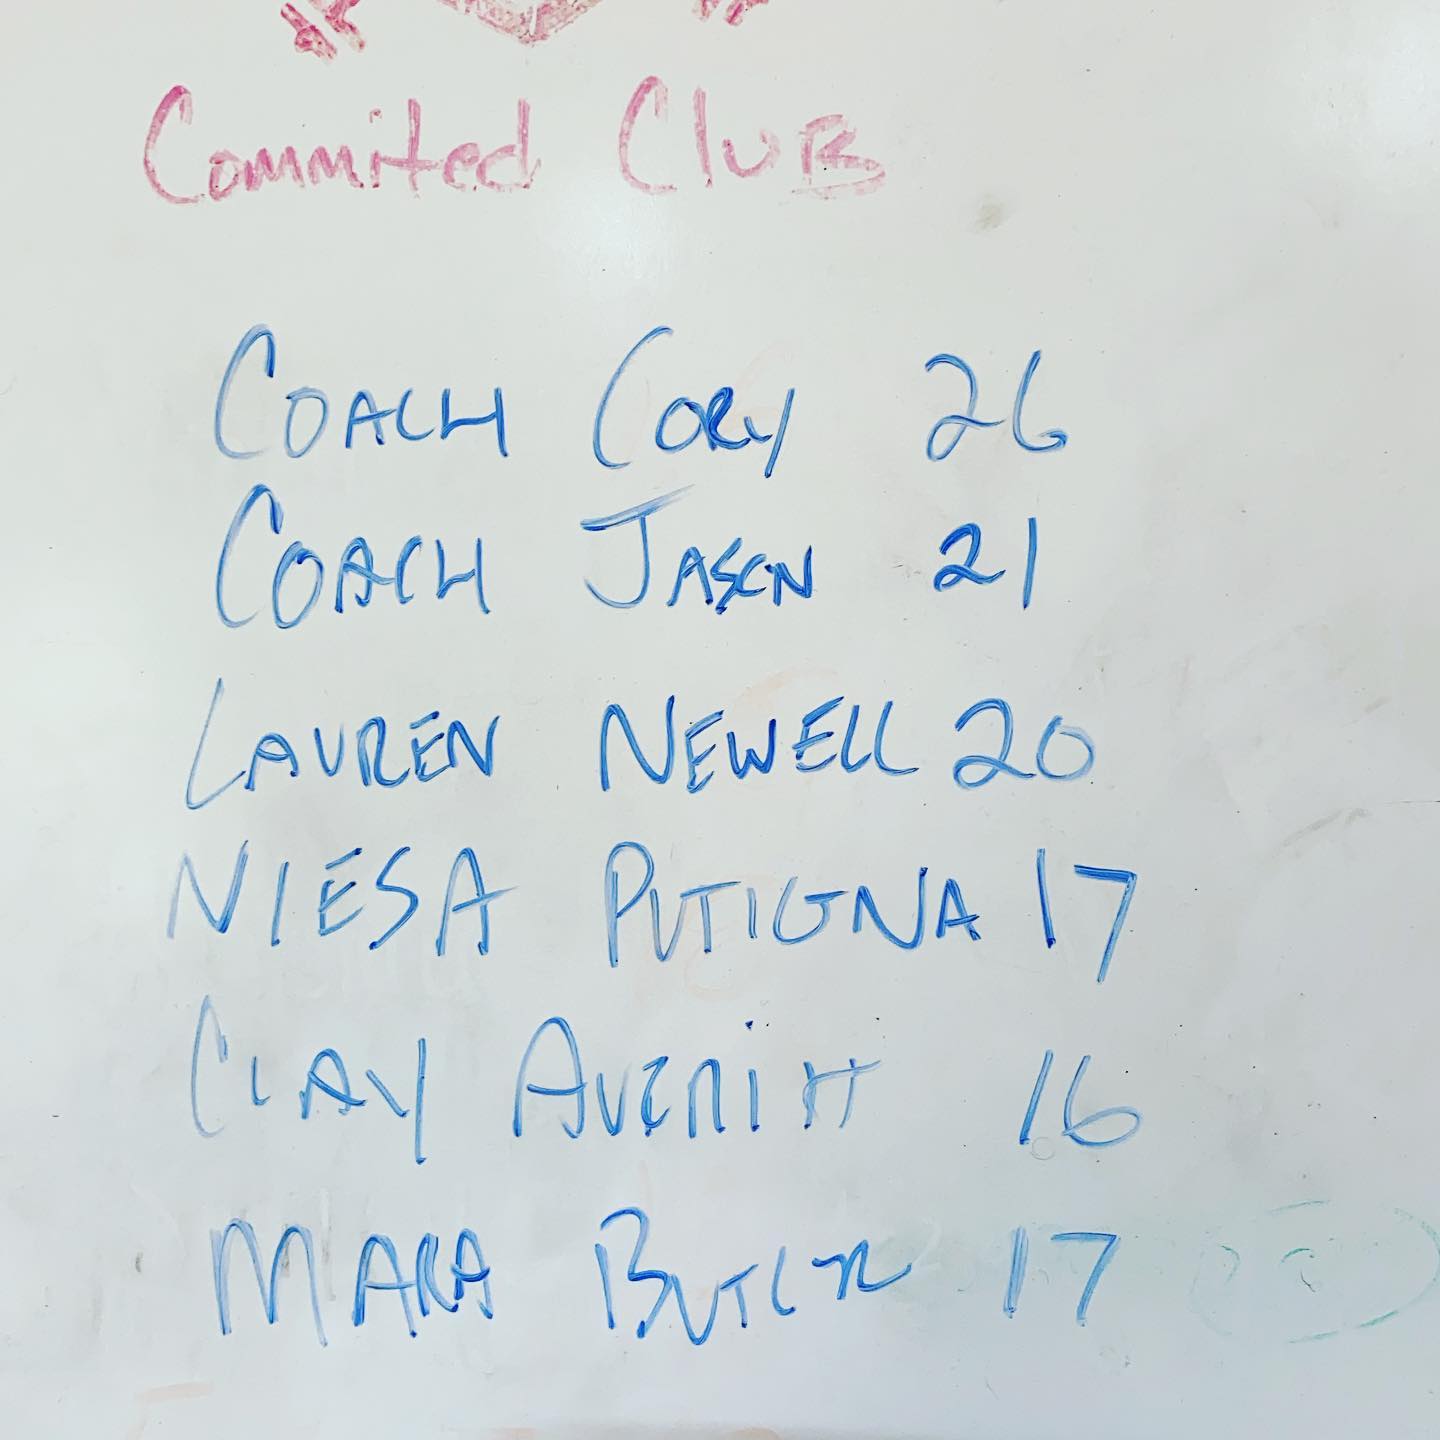 Commited Club
COACH CORY 26
COACH JASON 21
LAUREN NEWELL 20
NIESA PUTIGNA 17
CLAY AVERITT 16
MARA BUTLER 17